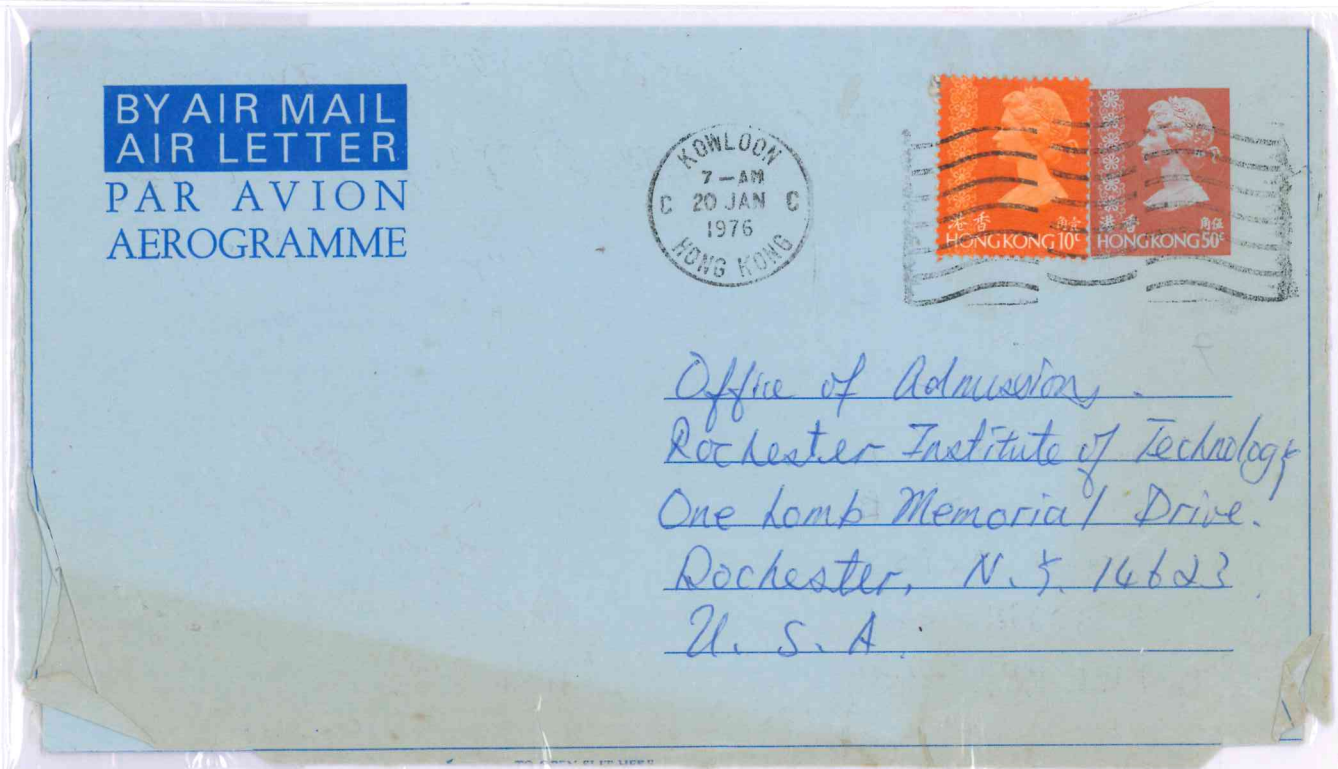 BY AIR MAIL
AIR LETTER
PAR AVION
AEROGRAMME
KOWLOON
7-AM
C 20 JAN C
1976
HONG KONG
港香 角壹
HONG KONG 10¢
港香 角伍
HONG KONG 50¢
Office of Admissions.
Rochester Institute of Technology
One Lomb Memorial Drive.
Rochester, N.Y. 14623
U. S. A.
TO OPEN SLIT HERE